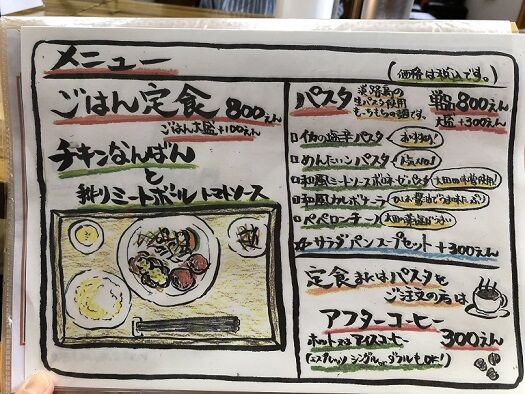 メニュー
(価格は税込です。)
ごはん定食 800えん
ごはん大盛+100えん
チキンなんばん
と
ミートボール トマトソース
パスタ
淡路島の
生パスタ使用
もっちもちの麺です。
単品800えん
大盛+300えん
イカの塩辛パスタ おすすめ!
めんたいこパスタ 人気No.1
和風ミートソースボロネーゼ
和風カルボナーラ
ペペロンチーノ
サラダパンスープセット +300えん
定食またはパスタを
ご注文の方は
アフターコーヒー
300えん
ホットまたはアイスコーヒー
(エスプレッソ シングルorダブルもOK!)